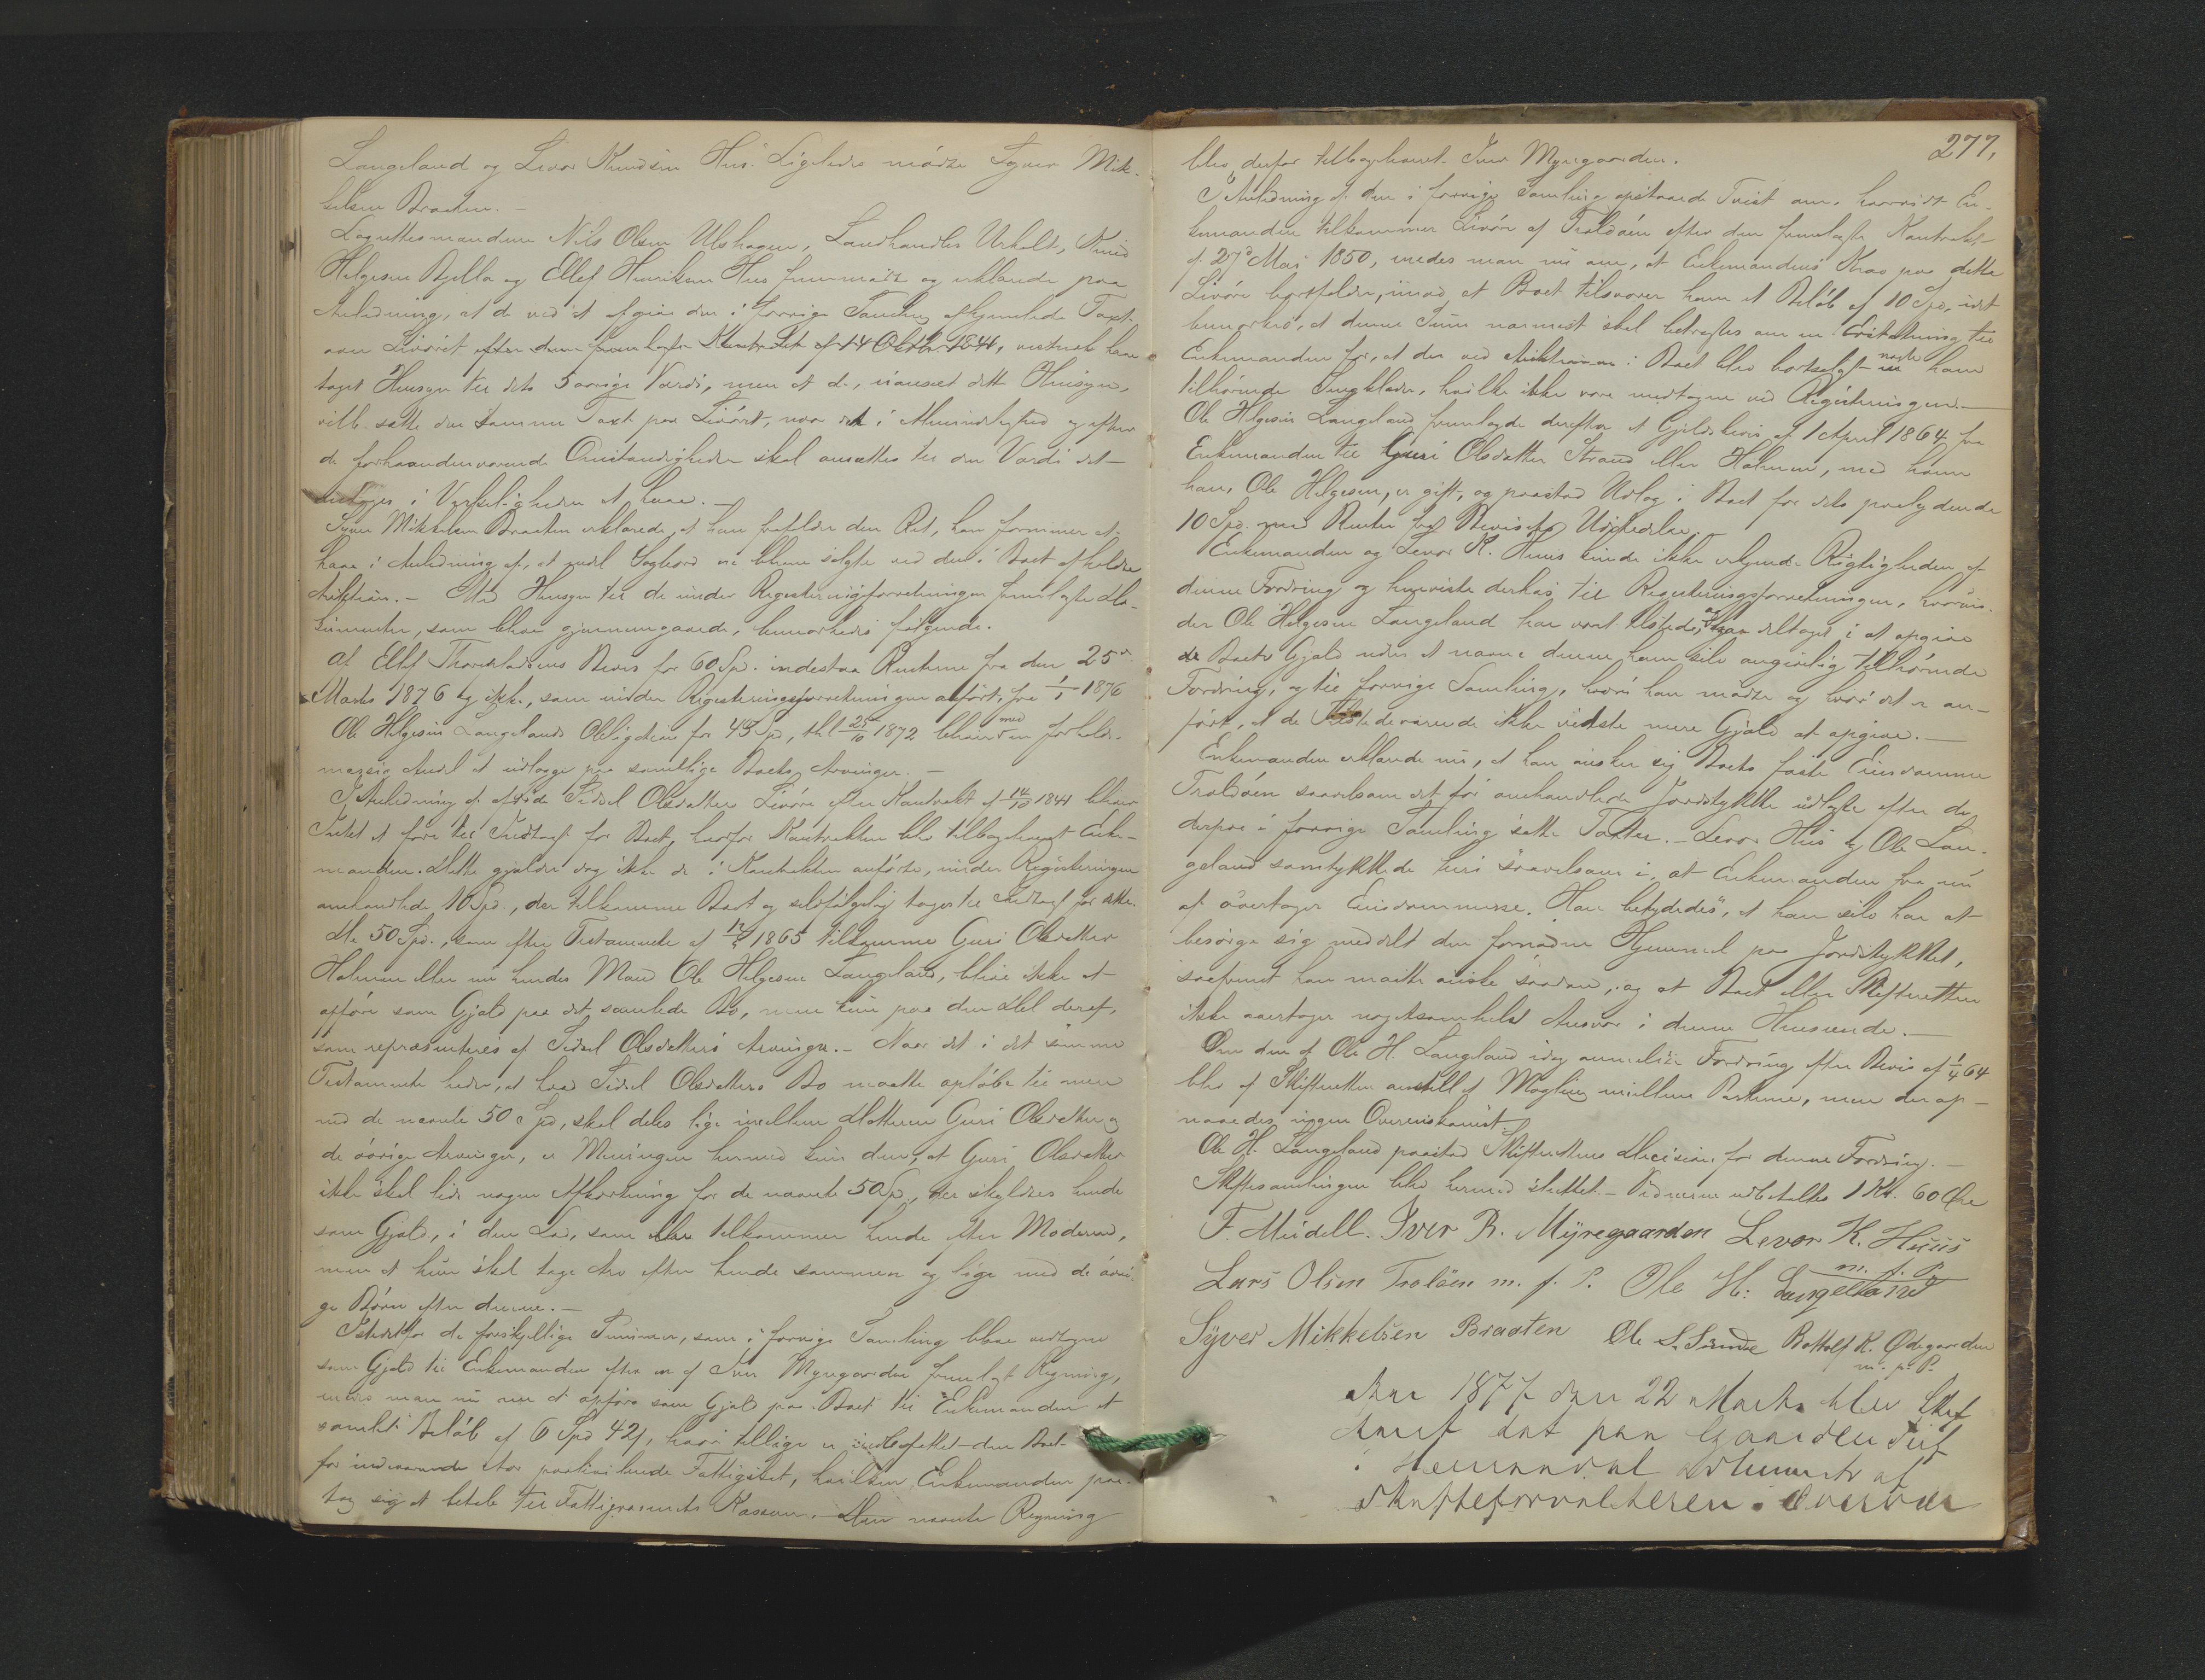 Langeland og Levor Knudsen Hus. Ligeledes mødte Syver Mik-
kelsen Braaten. -
Lagrettesmændene Nils Olsen Ulshagen, Landhandler Urholt, Knud
Helgesen Bjella og Ellef Henriksen Hus fremmødte og erklærede paa
Anledning, at de ved at afgive den i forrige Samling afhjemlede Taxt
over Livøret efter den fremlagte Kontrakt af 14 Oktbr. 1841, vistnok har
taget Hensyn til dets 5 aarige Værdi, men at de, uanseet dette Hensyn,
vilde sætte den samme Taxt paa Livøret, naar det i Almindelighed og efter
de forhaandenværende Omstændigheder skal ansættes til den Værdi det
antages i Virkeligheden at have. -
Syver Mikkelsen Braaten erklærede, at han frafalder den Ret, han formener at
have i Anledning af, at endel Sagbord ei bleve solgte ved den i Boet afholdte
Auktion. - Med Hensyn til de under Registreringsforretningen fremlagte Do-
kumenter, som bleve gjennemgaaede, bemærkedes følgende.
At Ellef Thorstadsens Bevis for 60 Spd. indestaar Renterne fra den 25de
Marts 1876 og ikke, som under Registreringsforretningen anført, fra 1/1 1876
Ole Helgesen Langelands Obligation for 45 Spd, thl 25/10 1872 bliver med en forholds-
mæssig Andel at udlægge paa samtlige Boets Arvinger. -
I Anledning af afdøde Sidsel Olsdatter Livøre efter Kontrakt af 14/10 1841 bliver
Intet at føre til Indtægt for Boet, hvorfor Kontrakten blev tilbageleveret Enke-
manden. Dette gjælder dog ikke de i Kontrakten anførte, under Registreringen
omhandlede 10 Spd., der tilkomme Boet og selvfølgelig tages til Indtægt for dette.
De 50 Spd., som efter Testamente af 1865 tilkomme Guri Olsdatter
Holmen eller nu hendes Mand Ole Helgesen Langeland, blive ikke at
opføre som Gjæld paa det samlede Bo, men kun paa den Del deraf,
som repræsenteres af Sidsel Olsdatters Arvinger. - Naar det i det samme
Testamente heder, at hvad Sidsel Olsdatters Bo maatte opløbe til mere
end de nævnte 50 Spd, skal deles lige imellem Datteren Guri Olsdatter og
de øvrige Arvinger, er Meningen hermed kun den, at Guri Olsdatter
ikke skal lide nogen Afkortning for de nævnte 50 Spd, der skyldes hende
som Gjæld, i den Lod, som ellers tilkommer hende efter Moderen,
men at hun skal tage Arv efter hende sammen og lige med de øvri-
ge Børn efter denne. -
Istedetfor de forskjellige Summer, som i forrige Samling bleve vedtagne
som Gjæld til Enkemanden efter en af Iver Myregaarden fremlagt Regning,
enedes man nu om at opføre som Gjæld paa Boet til Enkemanden et
samlet Beløb af 6 Spd 42 s, hvori tillige er indbefattet den Boet
for indeværende Aar paahvilende Fattigskat, hvilken Enkemanden paa-
tog sig at betale til Fattigvæsenets Kasserer. Den nævnte Regning
277,
blev derfor tilbageleveret Iver Myregaarden.
I Anledning af den i forrige Samling opstaaede Tvist om, hvorvidt En-
kemanden tilkommer Livøre af Troldøen efter den fremlagte Kontrakt
af 27de Mai 1850, enedes man nu om, at Enkemandens Krav paa dette
Livøre bortfalder, imod at Boet tilsvarer ham et Beløb af 10 Spd, idet
bemærkes, at denne Sum nærmest skal betragtes om en Erstatning til
Enkemanden for, at der ved Auktionen i Boet blev bortsolgt nogle ham
tilhørende Sengklæder, hvilke ikke vare medtagne ved Registreringen. -
Ole Helgesen Langeland fremlagde derefter et Gjeldsbevis af 1 April 1864 fra
Enkemanden til Guri Olsdatter Strand eller Holmen, med hvem
han, Ole Helgesen, er gift, og paastod Udlæg i Boet for dets paalydende
10 Spd. med Renter fra Bevisets Udstedelse.
Enkemanden og Levor K. Huus kunde ikke erkjende Rigtigheden af
denne Fordring og henviste derhos til Registreringsforretningen, hvorun-
der Ole Helgesen Langeland har været tilstede, og har deltaget i at opgive
Boets Gjæld uden at nævne denne ham selv angivelig tilhørende
Fordring, og til forrige Samling, hvori han mødte og hvor det er an-
ført, at de Tilstedeværende ikke vidste mere Gjæld at opgive. -
Enkemanden erklærede nu, at han ønsker sig Boets faste Eiendomme
Troldøen saavelsom det før omhandlede Jordstykke udlagte efter de
derpaa i forrige Samling satte Taxter. - Levor Hus og Ole Lan-
geland samtykkede heri saavelsom i, at Enkemanden fra nu
af overtager Eiendommene. Han betydedes, at han selv har at
besørge sig meddelt den fornødne Hjemmel paa Jordstykket,
saafremt han maatte ønske saadan, og at Boet eller Skifteretten
ikke overtager nogetsomhelst Ansvar i denne Henseende. -
Om den af Ole H. Langeland idag anmeldte Fordring efter Bevis af 1/4 64
blev af Skifteretten anstillet Mægling mellem Parterne, men der op-
naaedes ingen Overenskomst.
Ole H. Langeland paastod Skifterettens Decision for denne Fordring. -
Skiftesamlingen blev hermed sluttet. - Vidnerne udbetaltes 1 Kr. 60 Øre
F. Meidell. Iver B. Myregaarden Levor K. Huus
m. f. P.
Lars Olsen Troløen m. f. P. Ole H: Langeland
Syver Mikkelsen Braaten Ole S. Sunde Botholf K. Ødegaarden
m. p. P.
Aar 1877 den 22 Marts blev Skif
teret sat paa Gaarden
i Hemsedal
Skifteforvalteren. Overvær